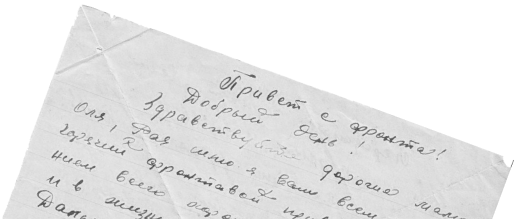 Привет с фронта!
Добрый день!
Здравствуйте дорогие мама
Оля! Рая шлю я вам всем
горячий фронтовой
нием всего
и в жизни